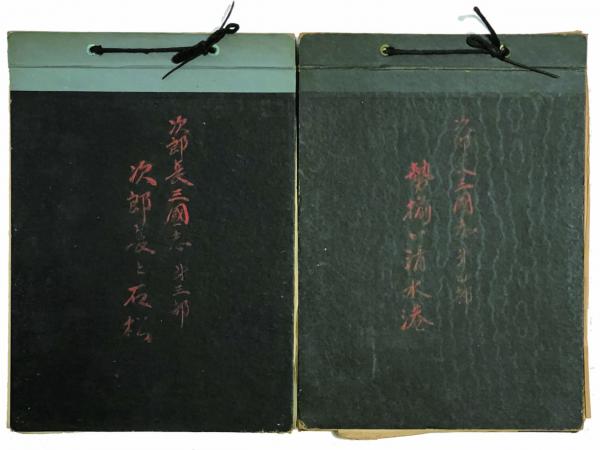 次郎長三國志 第三部
次郎長と石松
次郎長三國志 第四部
勢揃い清水港